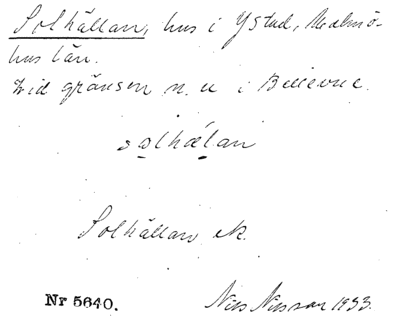 Solhällan, hus i Ystad, Malmö-
hus län.
Vid gränsen n. u. i Bellevue.
solhælan
Solhällan ek.
Nr 5640.
Nils Nilsson 1933.